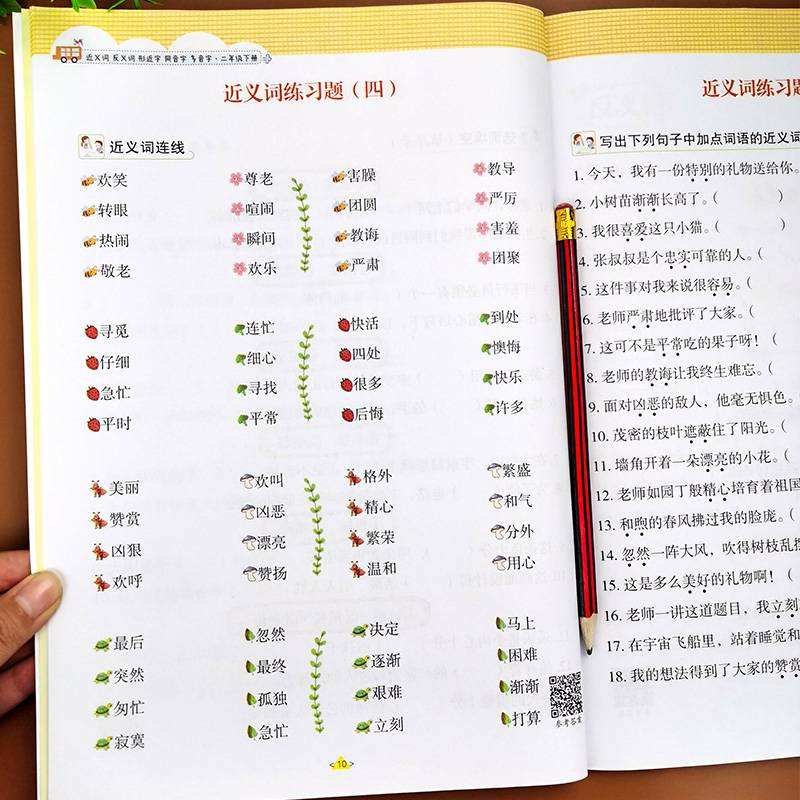 近义词 反义词 形近字 同音字 多音字·二年级下册
近义词练习题（四）
近义词连线
欢笑 尊老 害臊 教导
转眼 喧闹 团圆 严厉
热闹 瞬间 教诲 害羞
敬老 欢乐 严肃 团聚
寻觅 连忙 快活 到处
仔细 细心 四处 懊悔
急忙 寻找 很多 快乐
平时 平常 后悔 许多
美丽 欢叫 格外 繁盛
赞赏 凶恶 精心 和气
凶狠 漂亮 繁荣 分外
欢呼 赞扬 温和 用心
最后 忽然 决定 马上
突然 最终 逐渐 困难
匆忙 孤独 艰难 渐渐
寂寞 急忙 立刻 打算
参考答案
10
近义词练习
写出下列句子中加点词语的近义词
1. 今天，我有一份特别的礼物送给你。
2. 小树苗渐渐长高了。（ ）
3. 我很喜爱这只小猫。（ ）
4. 张叔叔是个忠实可靠的人。（
5. 这件事对我来说很容易。（
6. 老师严肃地批评了大家。（
7. 这可不是平常吃的果子呀！（
8. 老师的教诲让我终生难忘。（
9. 面对凶恶的敌人，他毫无惧色。
10. 茂密的枝叶遮蔽住了阳光。（
11. 墙角开着一朵漂亮的小花。（
12. 老师如园丁般精心培育着祖国
13. 和煦的春风拂过我的脸庞。（
14. 忽然一阵大风，吹得树枝乱摆
15. 这是多么美好的礼物啊！（
16. 老师一讲这道题目，我立刻
17. 在宇宙飞船里，站着睡觉和
18. 我的想法得到了大家的赞赏